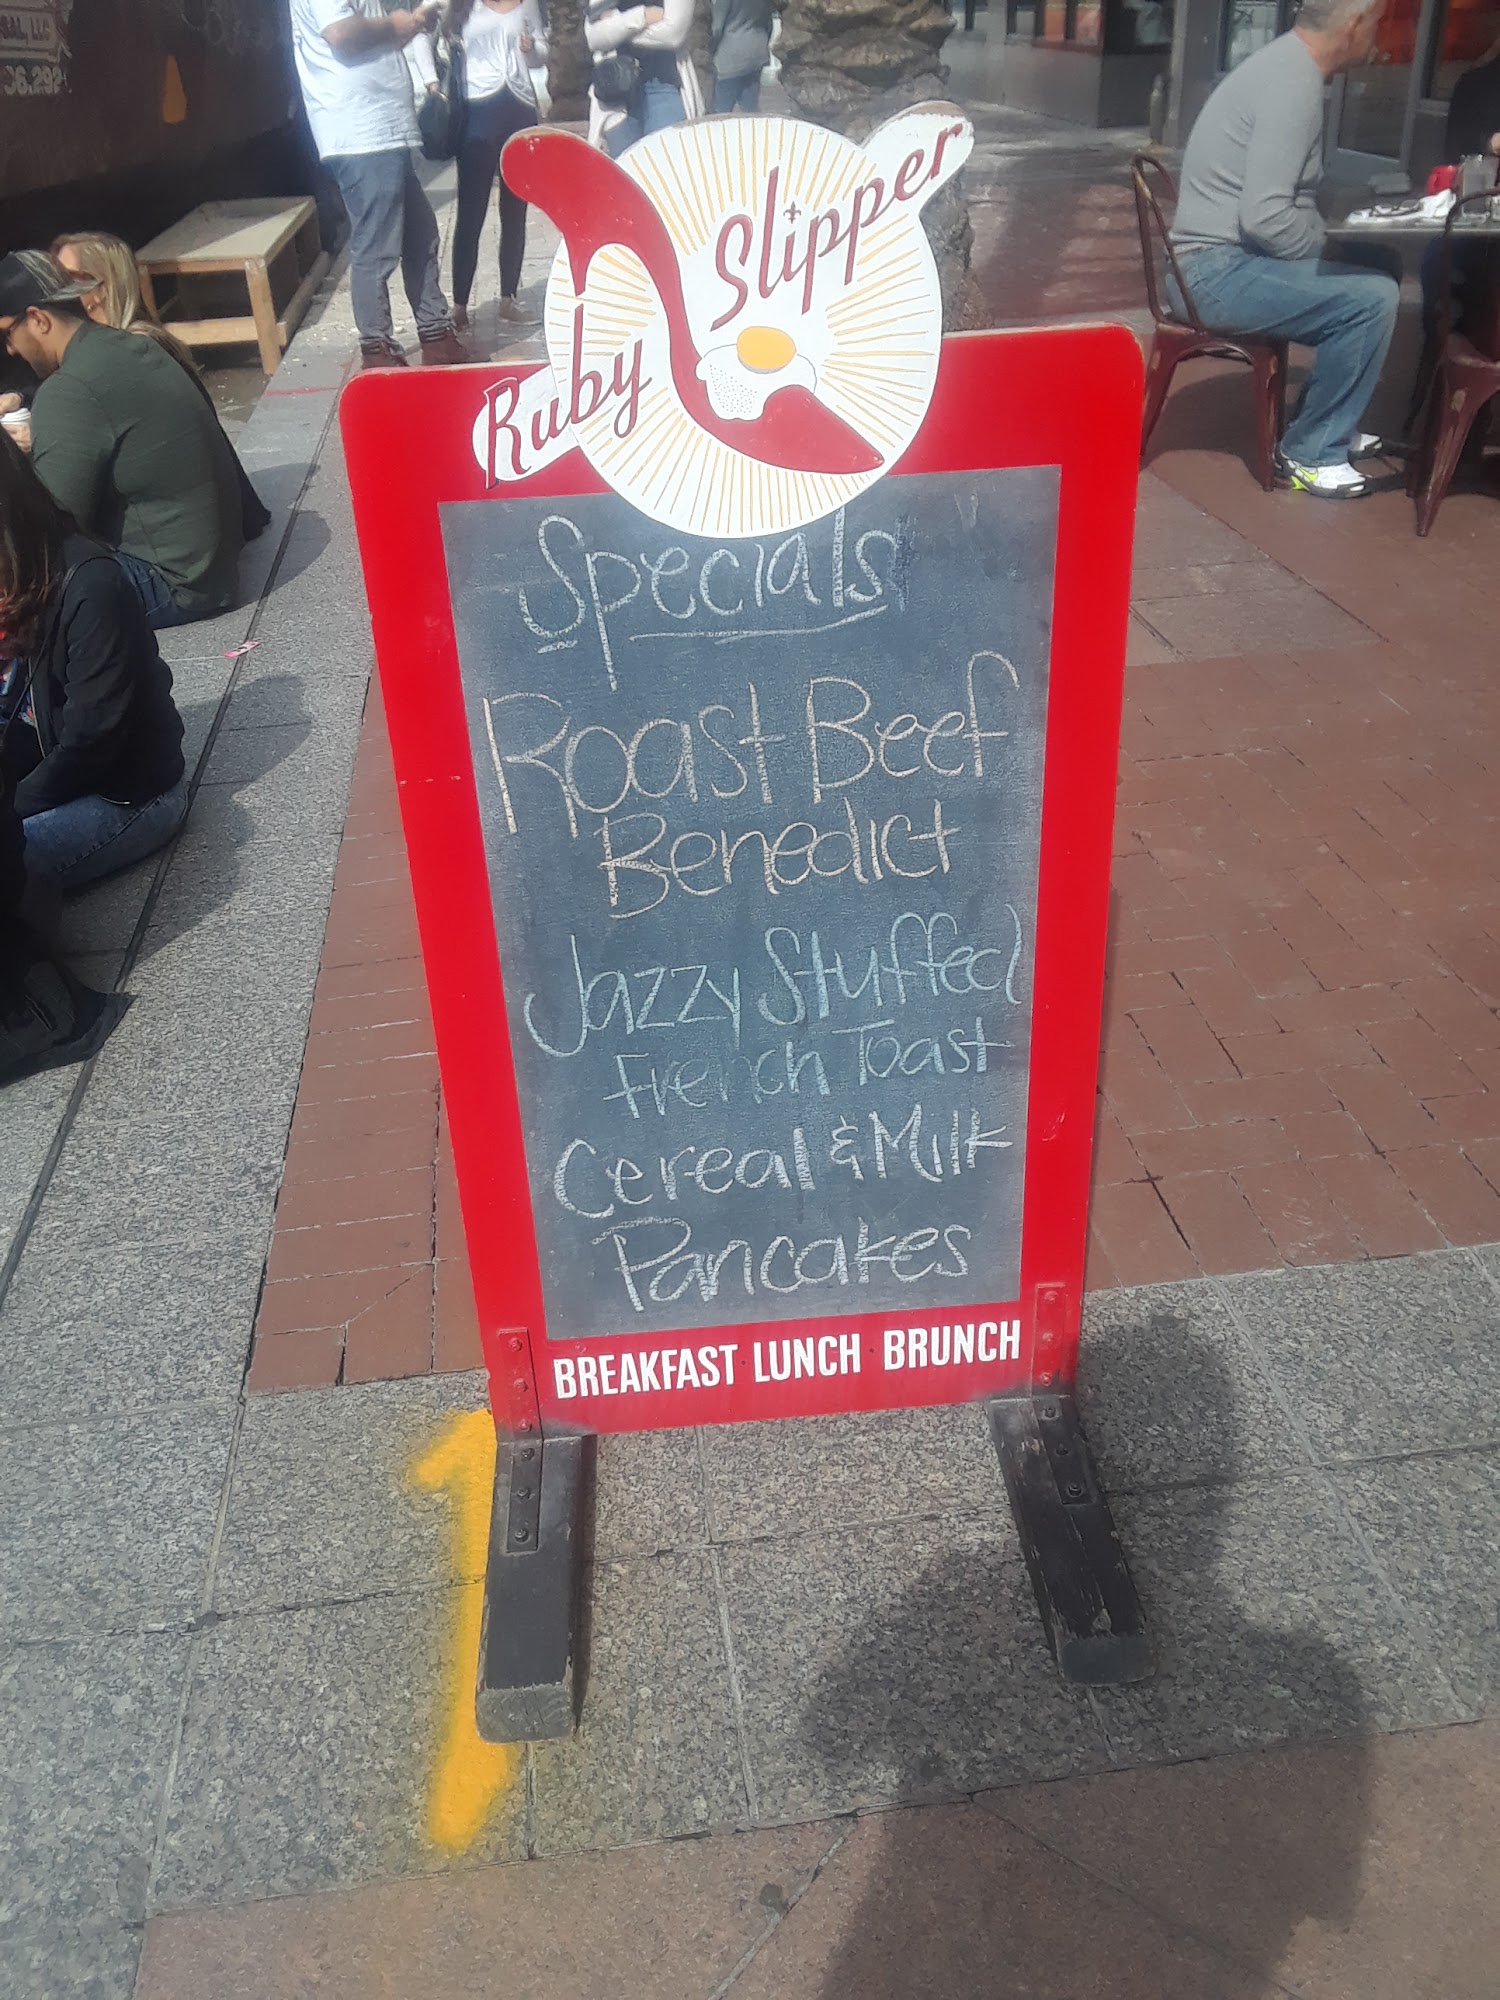 Ruby Slipper
Specials
Roast Beef
Benedict
Jazzy Stuffed
French Toast
Cereal & Milk
Pancakes
BREAKFAST · LUNCH · BRUNCH
1